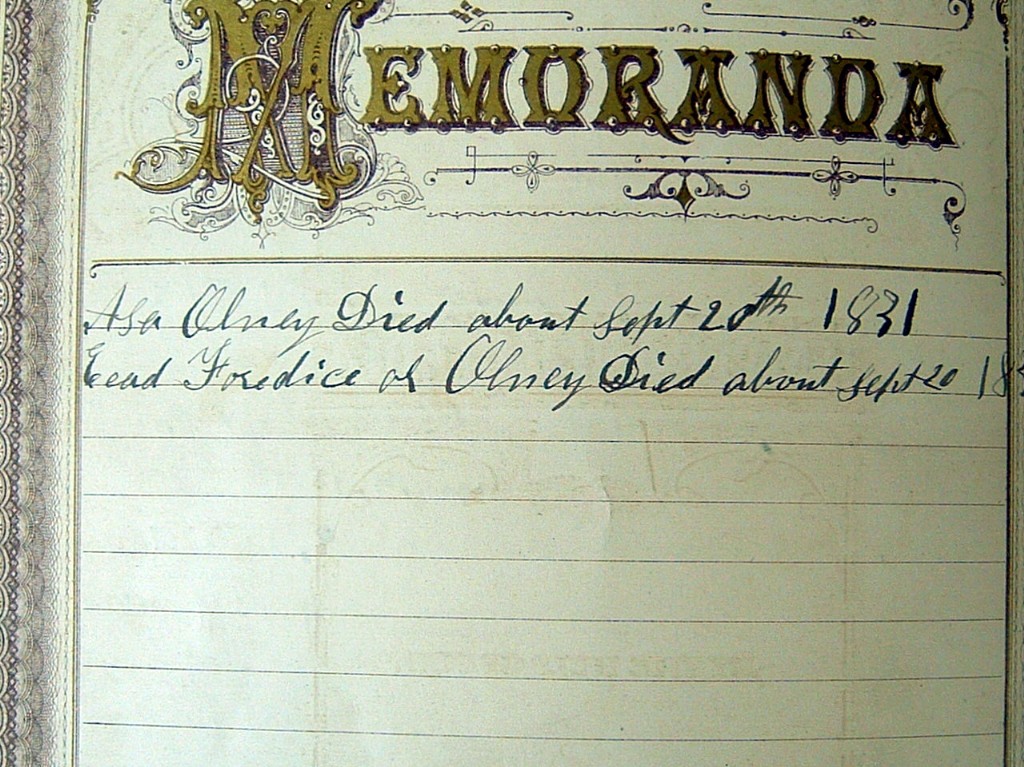 MEMORANDA
Asa Olney Died about Sept 20th 1831
Fordice or Olney Died about Sept 20 18